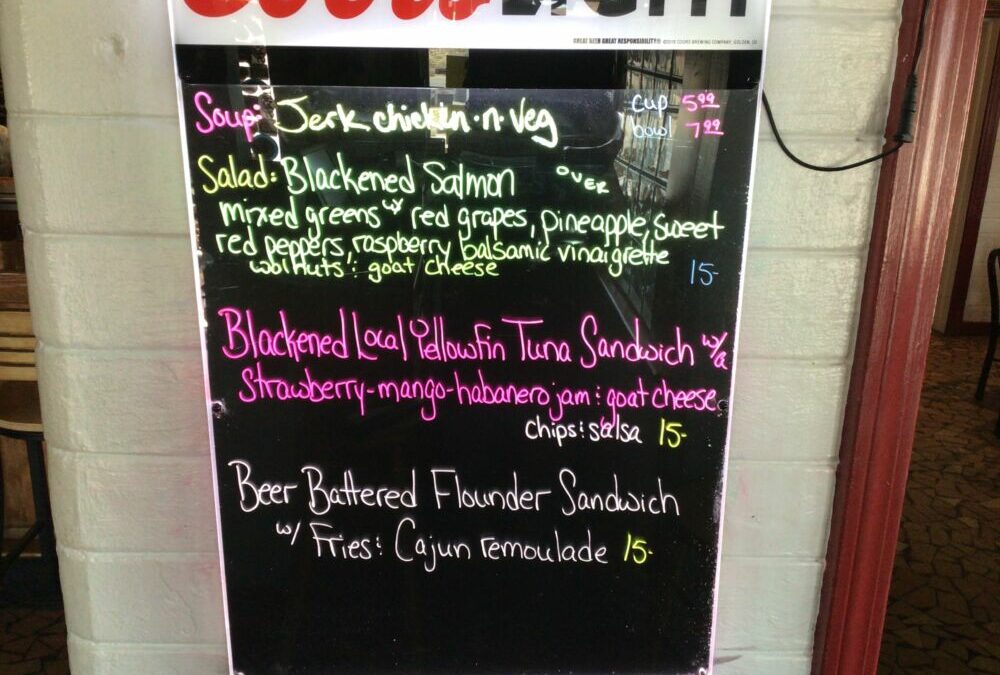 Coors LIGHT
GREAT BEER GREAT RESPONSIBILITY® ©2019 COORS BREWING COMPANY, GOLDEN, CO
Soup: Jerk chicken·n·Veg cup 5.99
bowl 7.99
Salad: Blackened Salmon over
mixed greens w/ red grapes, pineapple, sweet
red peppers, raspberry balsamic vinaigrette
walnuts : goat cheese 15-
Blackened Local Yellowfin Tuna Sandwich w/a
Strawberry-mango-habanero jam : goat cheese
chips : salsa 15-
Beer Battered Flounder Sandwich
w/ Fries : Cajun remoulade 15-